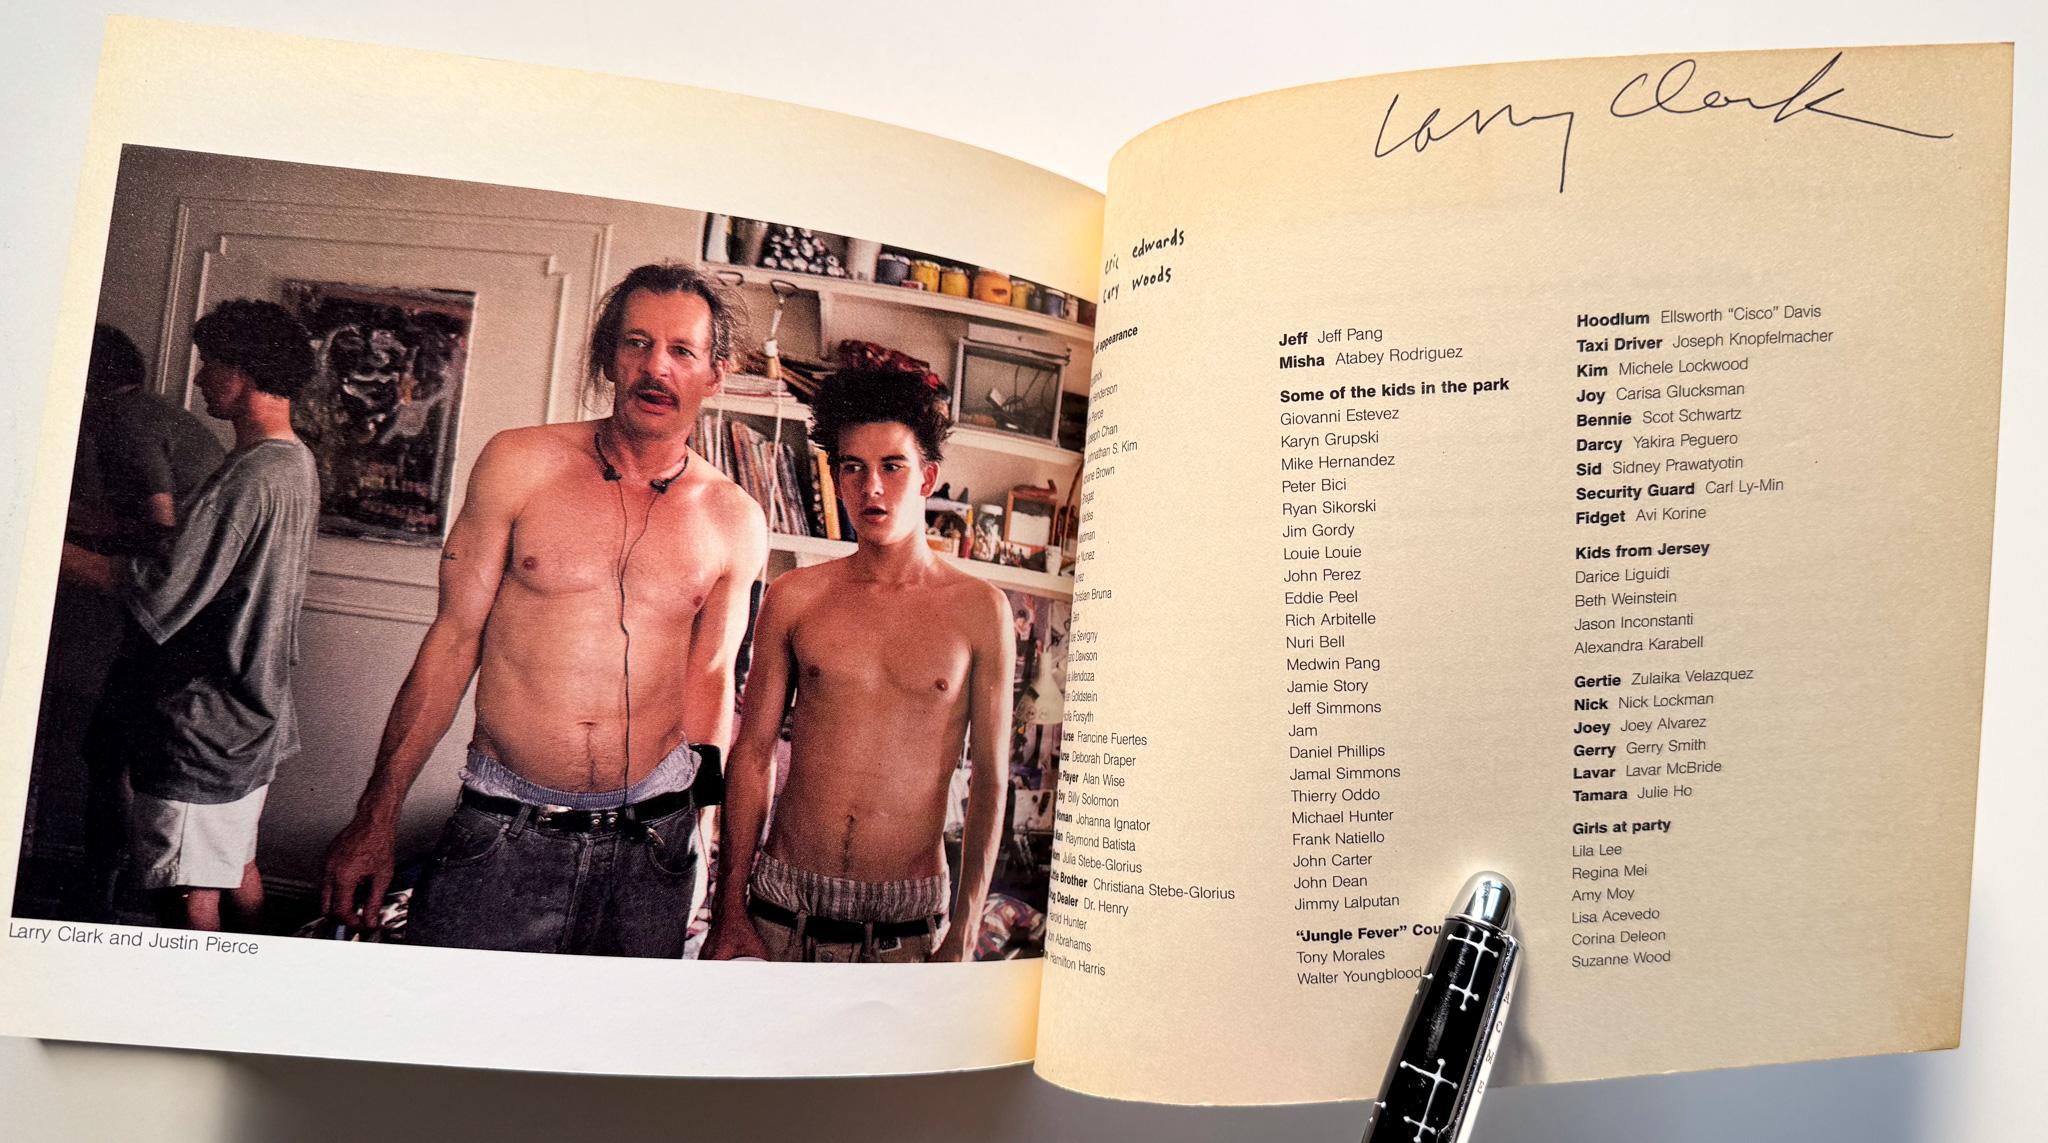 Larry Clark and Justin Pierce
Larry Clark
eric edwards
cary woods
of appearance
Henderson
Pierce
Joseph Chan
Johnathan S. Kim
Brown
Nunez
Christian Bruna
Sevigny
Dawson
Mendoza
Goldstein
Forsyth
Francine Fuertes
Deborah Draper
Player Alan Wise
Boy Billy Solomon
Woman Johanna Ignator
Raymond Batista
Julia Stebe-Glorius
Little Brother Christiana Stebe-Glorius
Dealer Dr. Henry
Harold Hunter
Jon Abrahams
Hamilton Harris
Jeff Jeff Pang
Misha Atabey Rodriguez
Some of the kids in the park
Giovanni Estevez
Karyn Grupski
Mike Hernandez
Peter Bici
Ryan Sikorski
Jim Gordy
Louie Louie
John Perez
Eddie Peel
Rich Arbitelle
Nuri Bell
Medwin Pang
Jamie Story
Jeff Simmons
Jam
Daniel Phillips
Jamal Simmons
Thierry Oddo
Michael Hunter
Frank Natiello
John Carter
John Dean
Jimmy Lalputan
"Jungle Fever" Cou
Tony Morales
Walter Youngblood
Hoodlum Ellsworth "Cisco" Davis
Taxi Driver Joseph Knopfelmacher
Kim Michele Lockwood
Joy Carisa Glucksman
Bennie Scot Schwartz
Darcy Yakira Peguero
Sid Sidney Prawatyotin
Security Guard Carl Ly-Min
Fidget Avi Korine
Kids from Jersey
Darice Liguidi
Beth Weinstein
Jason Inconstanti
Alexandra Karabell
Gertie Zulaika Velazquez
Nick Nick Lockman
Joey Joey Alvarez
Gerry Gerry Smith
Lavar Lavar McBride
Tamara Julie Ho
Girls at party
Lila Lee
Regina Mei
Amy Moy
Lisa Acevedo
Corina Deleon
Suzanne Wood